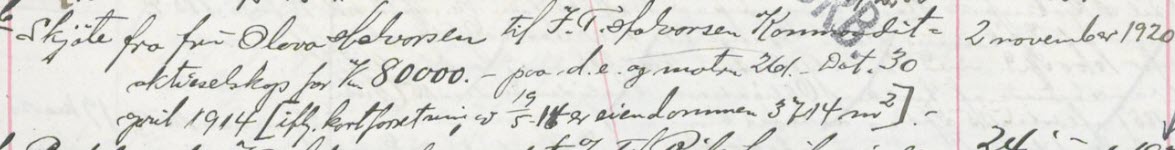 Skjøte fra fru Olava Halvorsen til F. T. Halvorsen Kommandit= 2 november 1920
aktieselskap for Kr. 80000.- paa d. e. og matr. 261. - Dat. 30
april 1914 [ifly. kartforretning av 19/5. 14 er eiendommen 3714 m²].-
24